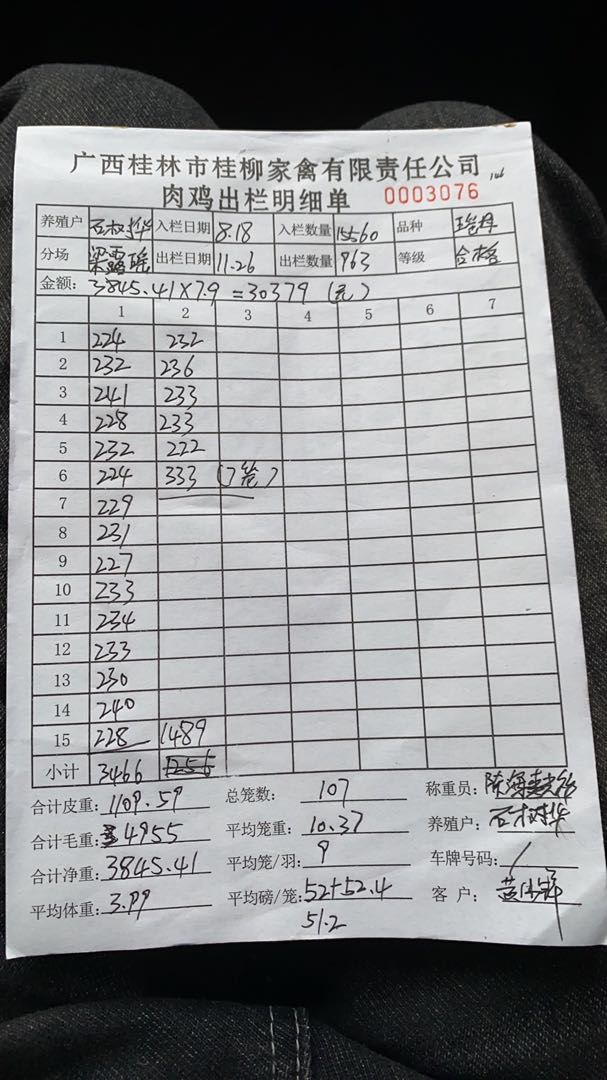 广西桂林市桂柳家禽有限责任公司
肉鸡出栏明细单 0003076
养殖户 石树华 入栏日期 8.18 入栏数量 15560 品种
分场 梁露瑶 出栏日期 11.26 出栏数量 963 等级 合格
金额: 3845.41×7.9=30379(元)
1 2 3 4 5 6 7
1 224 232
2 232 236
3 241 233
4 228 233
5 232 222
6 224 333 (7笼)
7 229
8 231
9 227
10 233
11 234
12 233
13 230
14 240
15 228 1489
小计 3466
合计皮重: 1109.59 总笼数: 107 称重员:
合计毛重: 4955 平均笼重: 10.37 养殖户: 石树华
合计净重: 3845.41 平均笼/羽: 9 车牌号码: /
平均体重: 3.99 平均磅/笼: 52+52.4 客户:
51.2